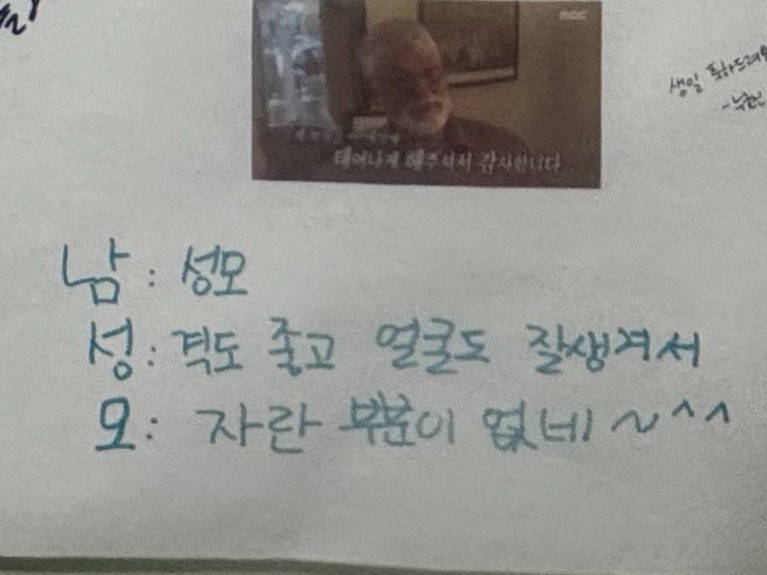 MBC
태어나게 해주셔서 감사합니다
생일 축하드려요
남: 성모
성: 격도 좋고 얼굴도 잘생겨서
모: 자란 부분이 없네~^^